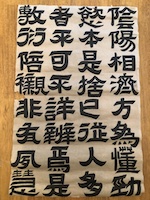 陰陽相濟方為懂勁
慾本是捨己從人多
者不可不詳辨焉是
敷衍陪襯非有夙慧